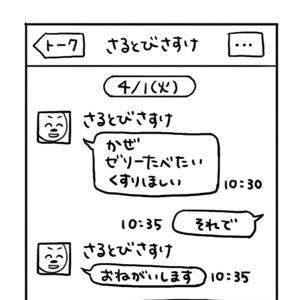 トーク
さるとびさすけ
...
4/1(火)
さるとびさすけ
かぜ
ゼリーたべたい
くすりほしい
10:30
10:35
それで
さるとびさすけ
おねがいします
10:35